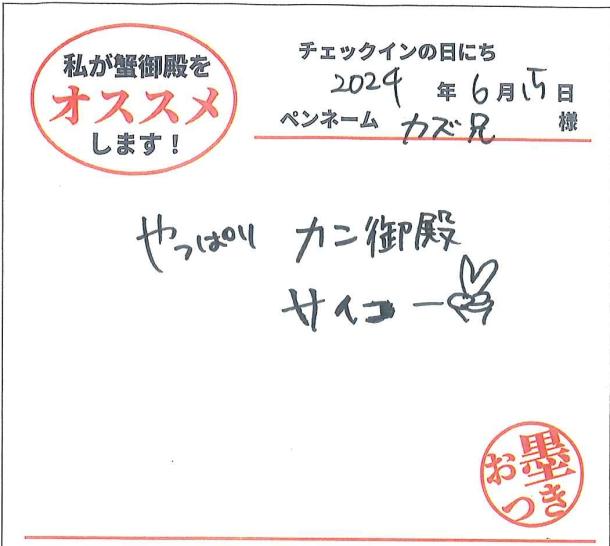 私が蟹御殿を
オススメ
します！
チェックインの日にち
2024年6月15日
ペンネーム カズ兄 様
やっぱり カン御殿
サイコー
お墨つき